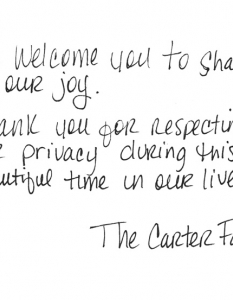 welcome you to sha
our joy.
ank you for respectin
privacy during this
utiful time in our live
The Carter Fa